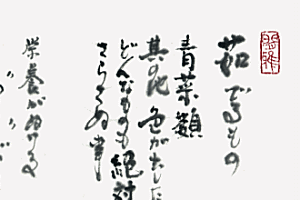 茹でるもの
青菜類
其の他 色がたしに
どんなものも絶対
さらさぬ事
栄養がぬける